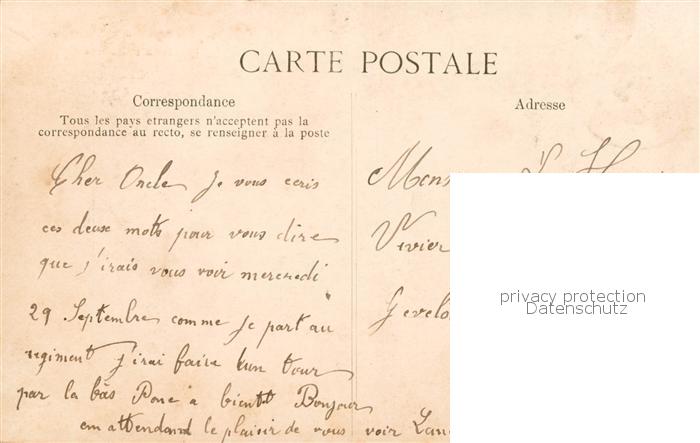 CARTE POSTALE
Correspondance
Tous les pays etrangers n'acceptent pas la
correspondance au recto, se renseigner à la poste
Adresse
Cher Oncle Je vous ecris
ces deux mots pour vous dire
que j'irais vous voir mercredi
29 Septembre comme je part au
regiment J'irai faire un tour
par la bàs Donc a bientot Bonjour
em attendand le plaisir de vous voir
Mons
Vivier
Gevelo
privacy protection
Datenschutz